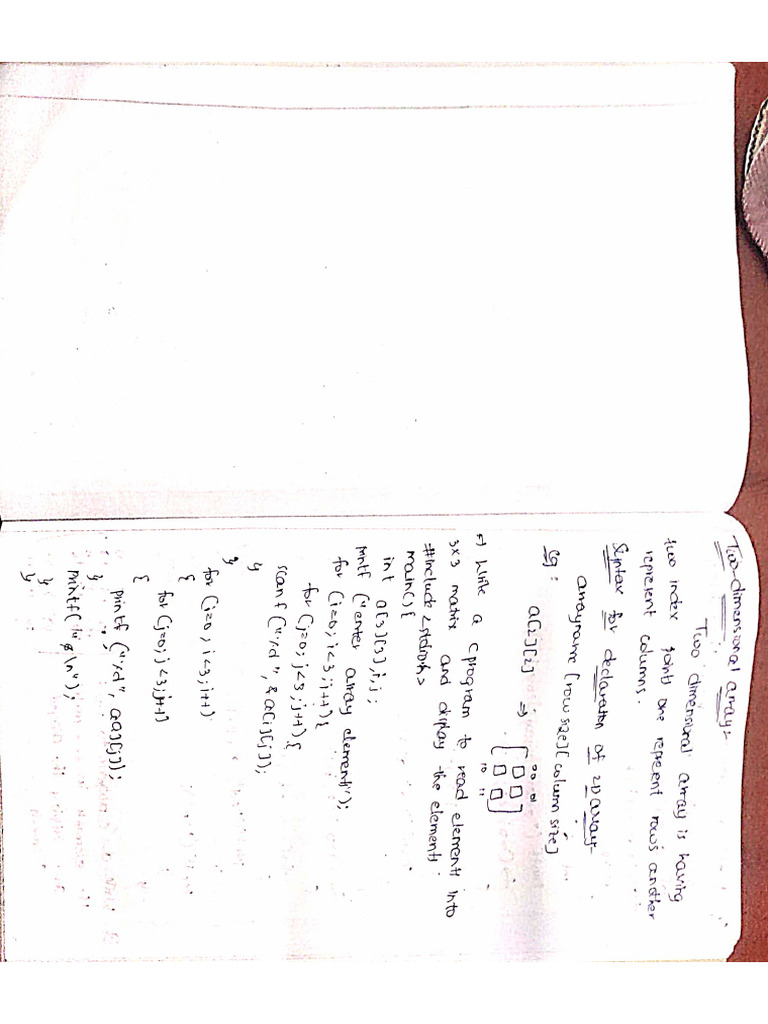 Two-dimensional array:-
Two dimensional array is having
two index points one represent rows another
represent columns.
Syntax for declaration of 2D array:-
arrayname [row size][column size]
Eg: a[2][2] ⇒
00 01
10 11
Write a c program to read elements into
3x3 matrix and display the elements.
#include <stdio.h>
main() {
int a[3][3], i, j;
printf ("enter array elements");
for (i=0; i<3; i++) {
for (j=0; j<3; j++) {
scanf ("%d", &a[i][j]);
}
}
for (i=0; i<3; i++)
{
for (j=0; j<3; j++)
{
printf ("%d", a[i][j]);
}
printf("\n");
}
}